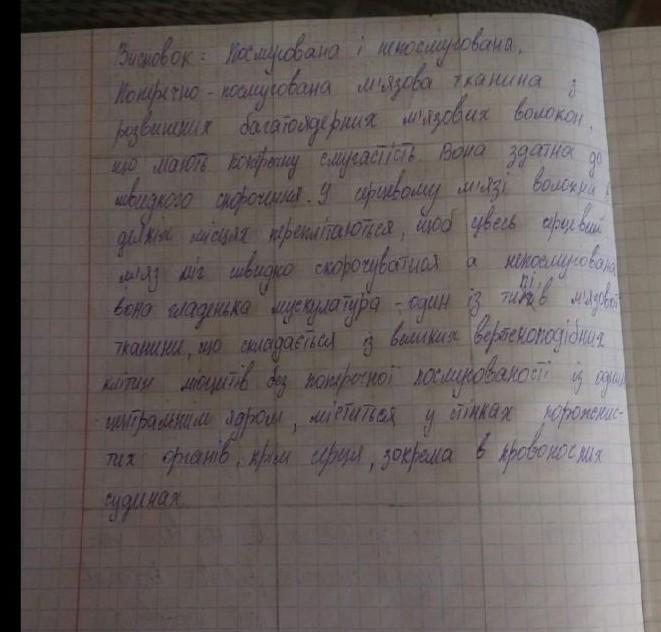 Висновок: Посмугована і непосмугована.
Поперечно-посмугована м'язова тканина з
розвинених багатоядерних м'язових волокон,
що мають поперечну смугастість. Вона здатна до
швидкого скорочення. У серцевому м'язі волокна в
деяких місцях переплітаються, щоб увесь серцевий
м'яз міг швидко скорочуватися а непосмугована
вона гладенька мускулатура - один із типів м'язової
тканини, що складається із великих веретеноподібних
клітин міоцитів без поперечної посмугованості із одним
центральним ядром, міститься у стінках порожнис-
тих органів, крім серця, зокрема в кровоносних
судинах.